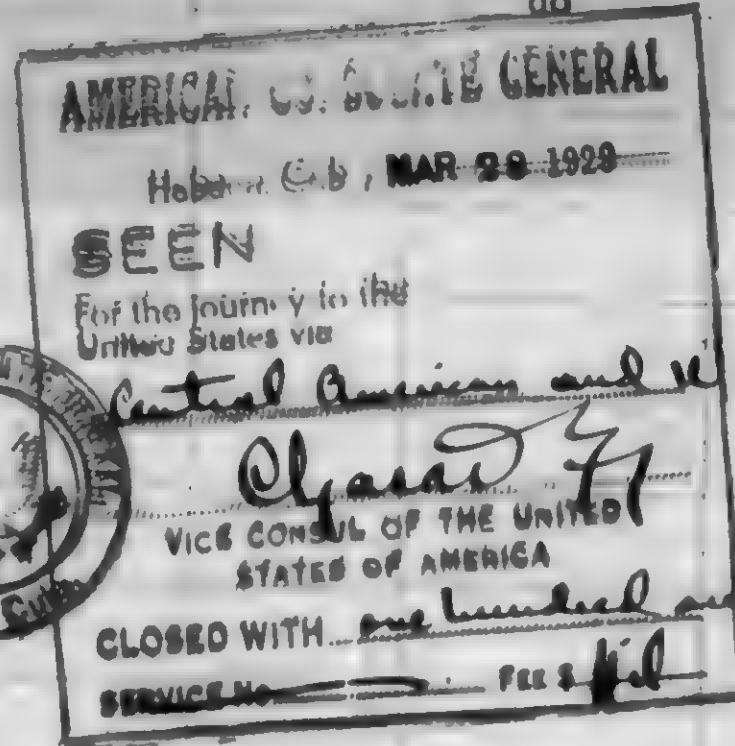 AMERICAN CONSULATE GENERAL
Habana, Cuba, MAR 1929
SEEN
For the journey to the
United States via
Central American and
VICE CONSUL OF THE UNITED
STATES OF AMERICA
CLOSED WITH one hundred
SERVICE No. FEE $ Nil
CUBA